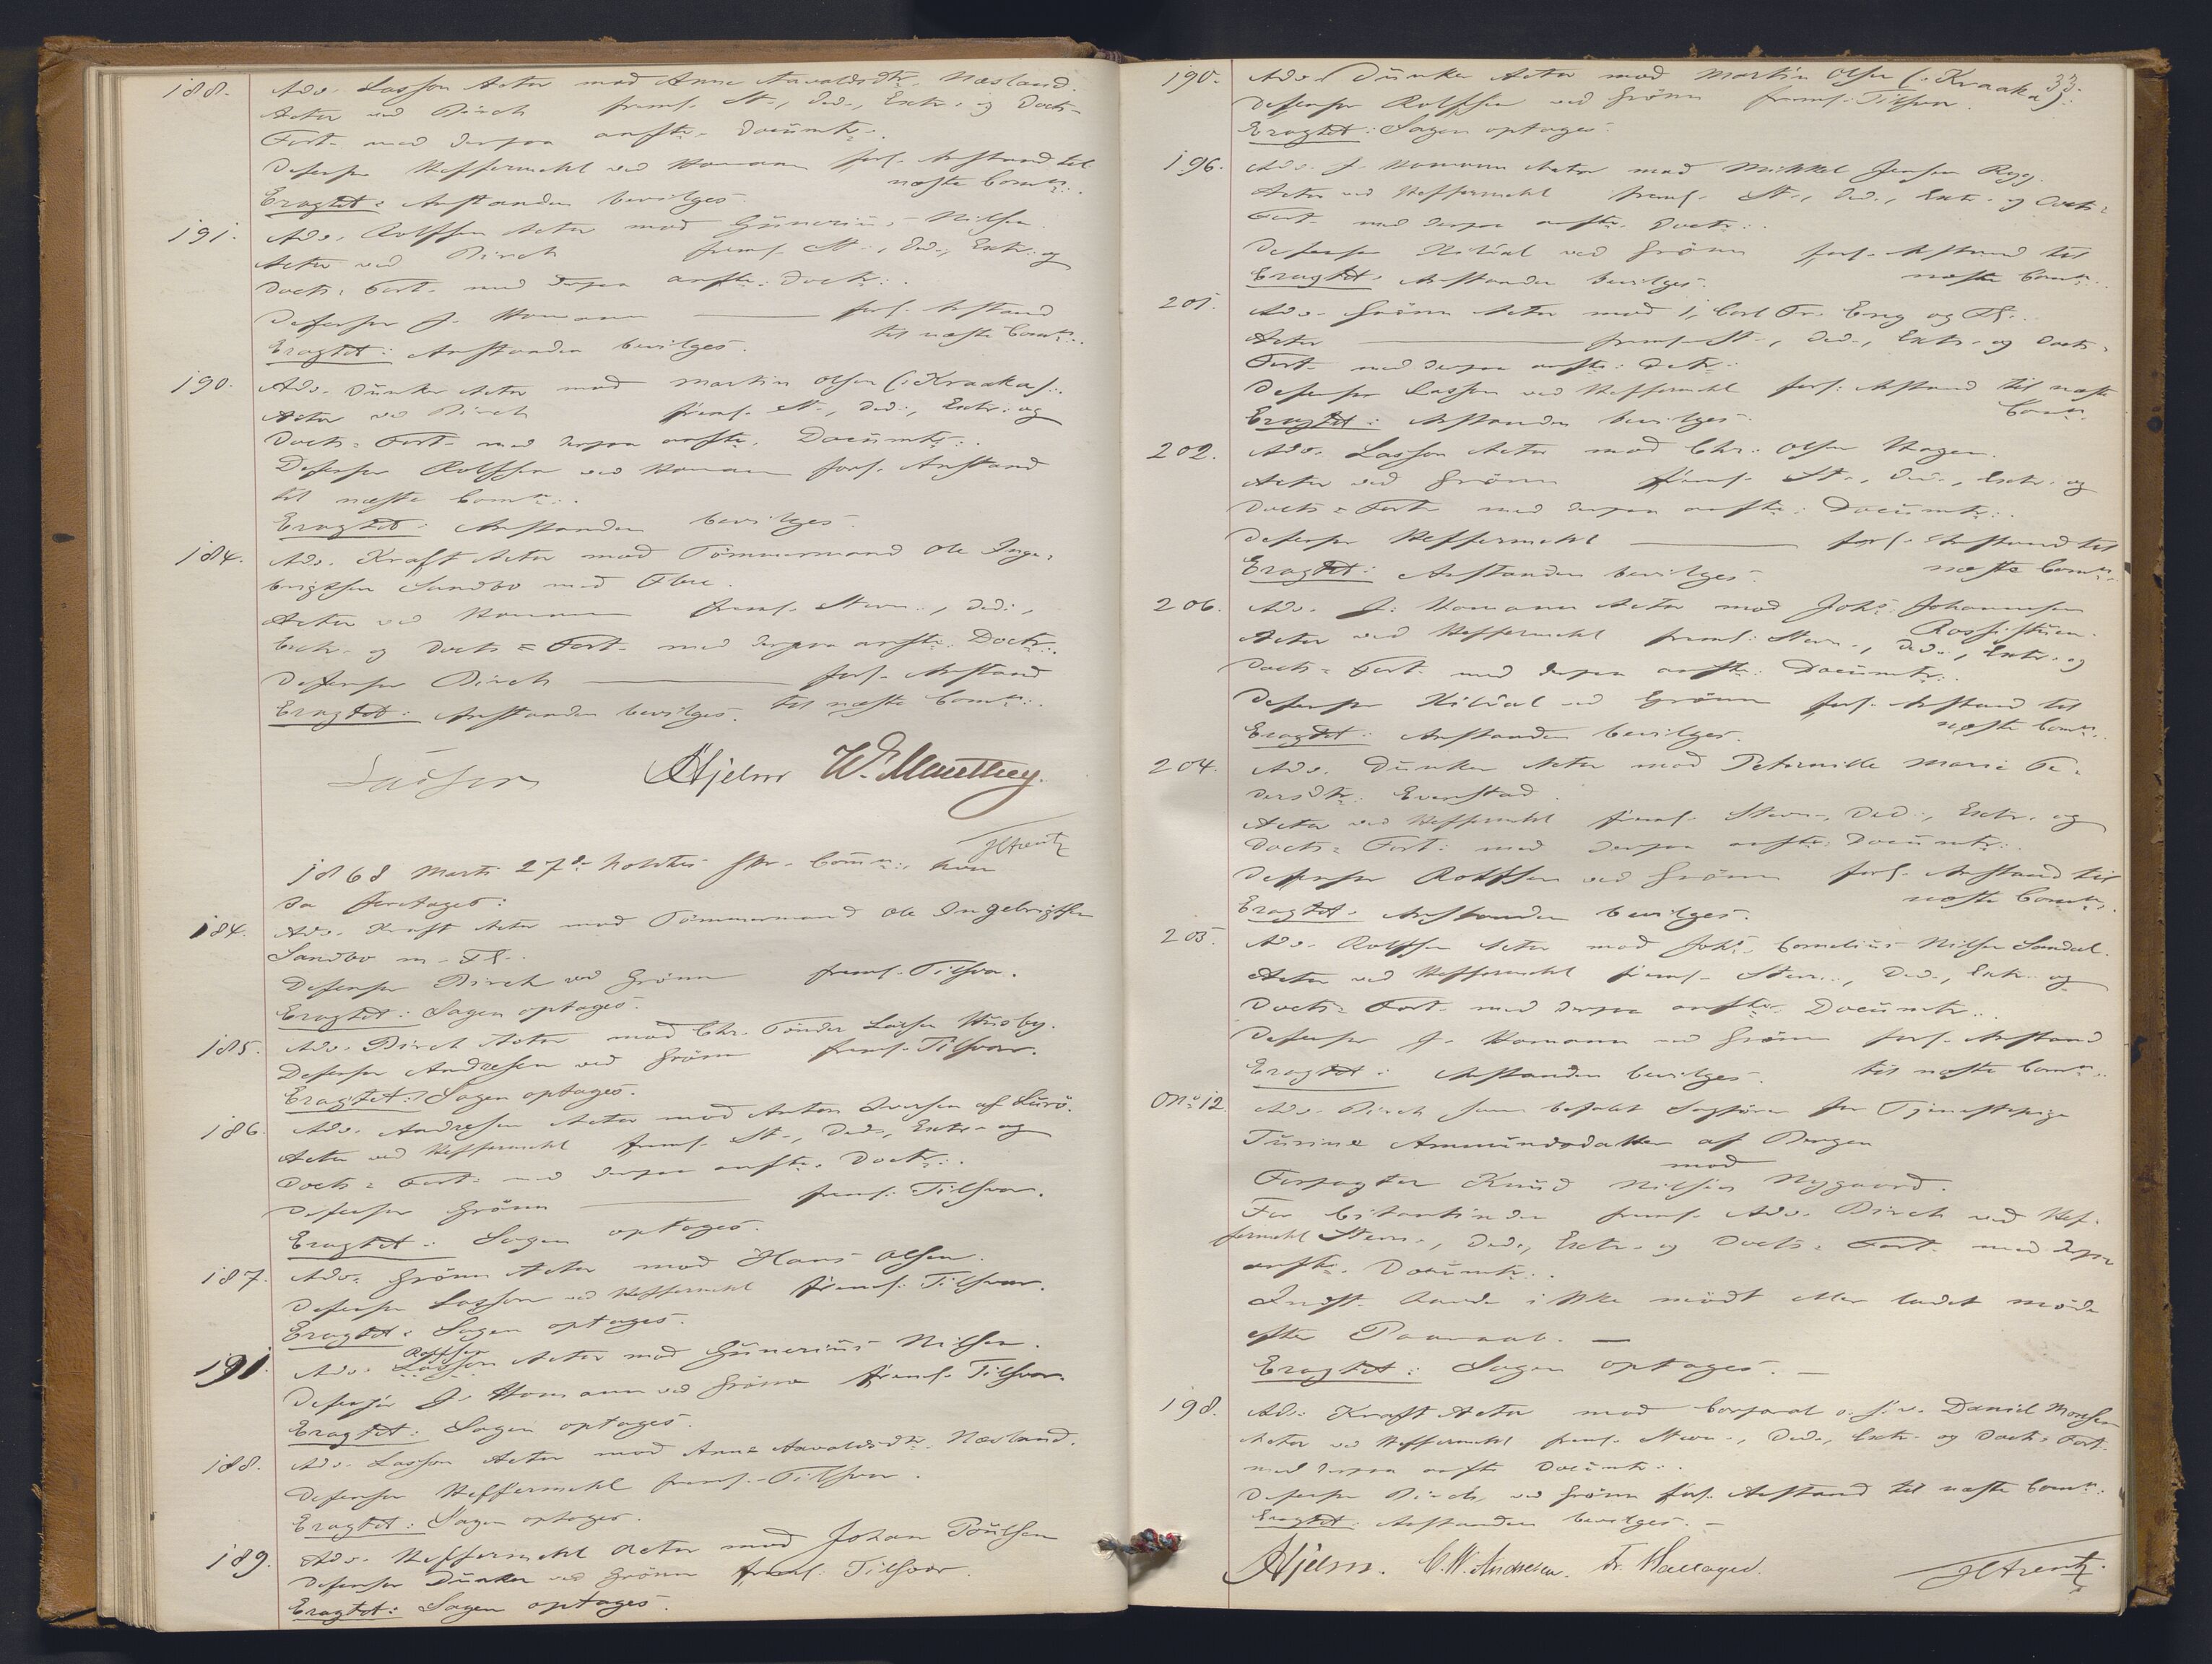 188. Adv. Lasson Actor mod Anne Aavaldsdtr. Næsland.
Actor ved Birch freml. St., Ded., Extr. og Docts=
Fort. med derpaa anfte. Documtr.
Defensor Heffermehl ved Homann forl. Anstand til
næste Comn.
Eragtet: Anstanden bevilges.
191. Adv. Rolffsen Actor mod Gunerius Nilsen.
Actor ved Birch freml. St., Ded., Extr. og
Docts= Fort. med derpaa anfte. Doctr.
Defensor J. Homann — forl. Anstand
til næste Comn.
Eragtet: Anstanden bevilges.
190. Adv. Dunker Actor mod Martin Olsen (: Kraaka :).
Actor ved Birch freml. St., Ded., Extr. og
Docts= Fort. med derpaa anfte. Documtr.
Defensor Rolffsen ved Homann forl. Anstand
til næste Comn.
Eragtet: Anstanden bevilges.
184. Adv. Kraft Actor mod Tømmermand Ole Inge=
brigtsen Sandbo med Flere.
Actor ved Homann freml. Stevn., Ded.,
Extr. og Docts= Fort. med derpaa anfte. Doctr.
Defensor Birch — forl. Anstand
til næste Comn.
Eragtet: Anstanden bevilges.
Hjelm W. E. Manthey.
1868 Marts 27de holdtes Comn., hvor
da foretages:
184. Adv. Kraft Actor mod Tømmermand Ole Ingebrigtsen
Sandbo m. Fl.
Defensor Birch ved Grönn freml. Tilsvar.
Eragtet: Sagen optages.
185. Adv. Birch Actor mod Chr. Tønder Husby.
Defensor Andresen ved Grönn freml. Tilsvar.
Eragtet: Sagen optages.
186. Adv. Andresen Actor mod Anton Iversen af Lurö.
Actor ved Heffermehl freml. St., Ded., Extr. og
Docts= Fort. med derpaa anfte. Doctr.
Defensor Grönn — freml. Tilsvar.
Eragtet: Sagen optages.
187. Adv. Grönn Actor mod Hans Olsen.
Defensor Lasson ved Heffermehl freml. Tilsvar.
Eragtet: Sagen optages.
191. Adv. Lasson Rolffsen Actor mod Gunerius Nilsen.
Defensor J. Homann ved Grönn freml. Tilsvar.
Eragtet: Sagen optages.
188. Adv. Lasson Actor mod Anne Aavaldsdtr. Næsland.
Defensor Heffermehl freml. Tilsvar.
Eragtet: Sagen optages.
189. Adv. Heffermehl Actor mod Johan Poulsen
Defensor Dunker ved Grönn freml. Tilsvar.
Eragtet: Sagen optages.
33.
190. Adv. Dunker Actor mod Martin Olsen (: Kraaka :).
Defensor Rolffsen ved Grönn freml. Tilsvar.
Eragtet: Sagen optages.
196. Adv. J. Homann Actor mod Mikkel Jensen Rygg.
Actor ved Heffermehl freml. St., Ded., Extr. og Docts=
Fort. med derpaa anfte. Doctr.
Defensor ved Grönn forl. Anstand til
næste Comn.
Eragtet: Anstanden bevilges.
201. Adv. Grönn Actor mod 1, Carl Fr. Eng og Fl.
Actor — freml. St., Ded., Extr. og Docts=
Fort. med derpaa anfte. Dctr.
Defensor Lasson ved Heffermehl forl. Anstand til næste
Comn.
Eragtet: Anstanden bevilges.
202. Adv. Lasson Actor mod Chr. Olsen Hagen.
Actor ved Grönn freml. St., Ded., Extr. og
Docts= Fort. med derpaa anfte. Documtr.
Defensor Heffermehl — forl. Anstand til
næste Comn.
Eragtet: Anstanden bevilges.
206. Adv. J. Homann Actor mod Johs. Johannesen
Actor ved Heffermehl freml. Stevn., Ded., Extr. og
Docts= Fort. med derpaa anfte. Documtr.
Defensor ved Grönn forl. Anstand til
næste Comn.
Eragtet: Anstanden bevilges.
204. Adv. Dunker Actor mod Peternille Marie Pe=
dersdtr. Evenstad.
Actor ved Heffermehl freml. Stevn., Ded., Extr. og
Docts= Fort. med derpaa anfte. Documtr.
Defensor Rolffsen ved Grönn forl. Anstand til
næste Comn.
Eragtet: Anstanden bevilges.
205. Adv. Rolffsen Actor mod Johs. Cornelius Nilsen Sundal.
Actor ved Heffermehl freml. Stevn., Ded., Extr. og
Docts= Fort. med derpaa anfte. Documtr.
Defensor J. Homann ved Grönn forl. Anstand
til næste Comn.
Eragtet: Anstanden bevilges.
No. 12. Adv. Birch som befalet Sagförer for Tjenestepige
Turine Amundsdatter af Bergen
mod
Forpagter Knud Nilsen Nygaard.
For Citantinden freml. Adv. Birch ved Hef=
fermehl Stevn., Ded., Extr. og Docts= Fort. med derpaa
anfte. Documtr.
Indst. havde ikke mödt eller ladet möde
efter Paaraab. —
Eragtet: Sagen optages. —
198. Adv. Kraft Actor mod Corporal Daniel Monsen
Actor ved Heffermehl freml. Stevn., Ded., Extr. og Docts= Fort.
med derpaa anfte Documtr.
Defensor Birch ved Grönn forl. Anstand til næste Comn.
Eragtet: Anstanden bevilges. —
Hjelm. C. W. Andresen.